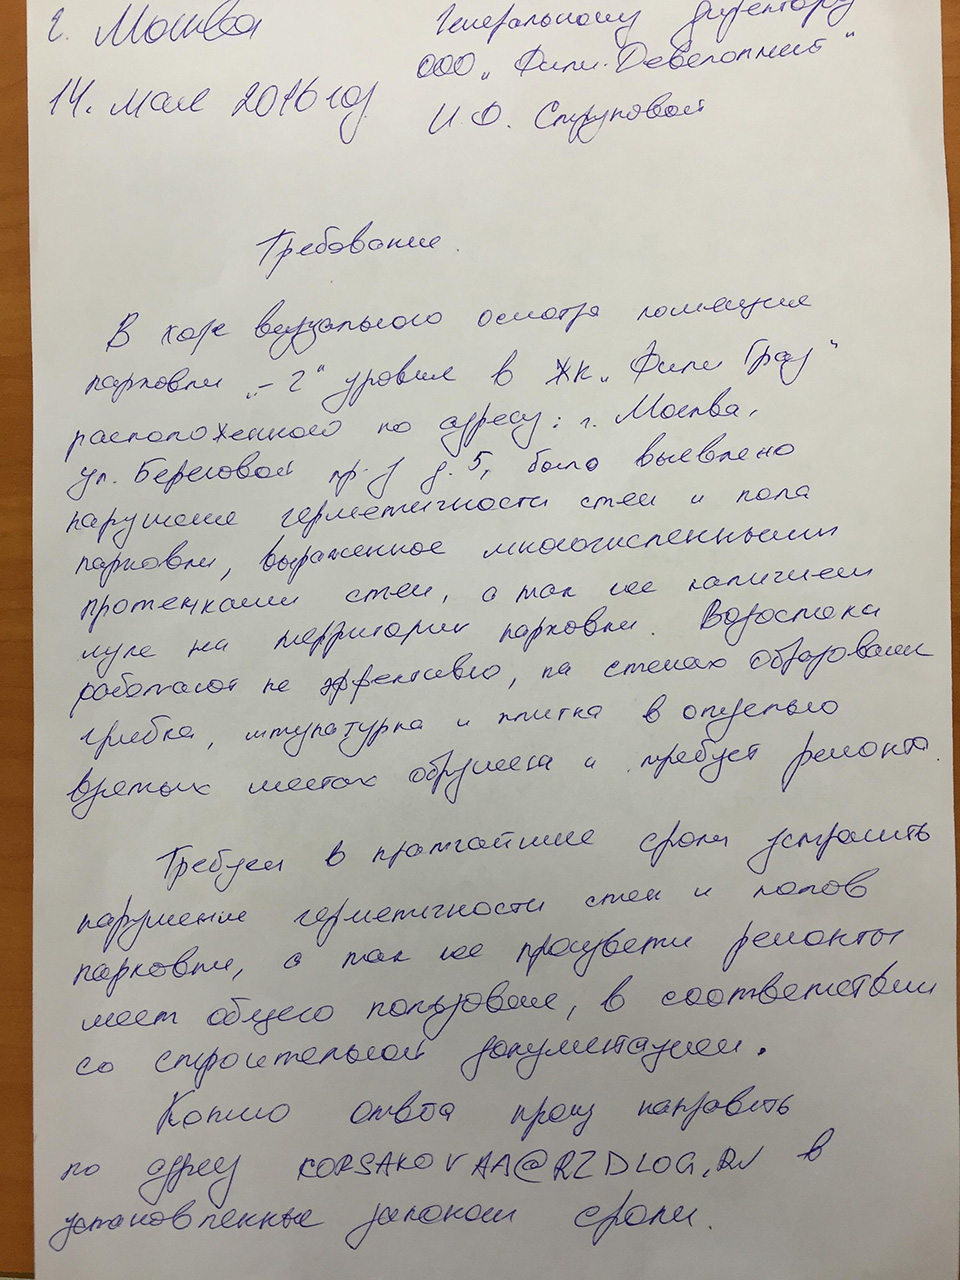 г. Москва
Генеральному директору
ООО „Фили-Девелопмент"
14. мая 2016 год
И.О. Струповой
Требование.
В ходе визуального осмотра помещения
парковки „-2" уровня в ЖК „Фили Град"
расположенного по адресу: г. Москва,
ул. Береговой пр-д д. 5, было выявлено
нарушение герметичности стен и пола
парковки, выраженное многочисленными
протечками стен, а так же наличием
луж на территории парковки. Водостоки
работают не эффективно, на стенах образовани
грибка, штукатурка и плитка в
местах обрушена и требует ремонта.
Требуем в кратчайшие сроки устранить
нарушение герметичности стен и полов
парковки, а так же произвести ремонты
мест общего пользования, в соответствии
со строительной документацией.
Копию ответа прошу направить
по адресу KORSAKOVAA@RZDLOG.RU в
установленные законом сроки.